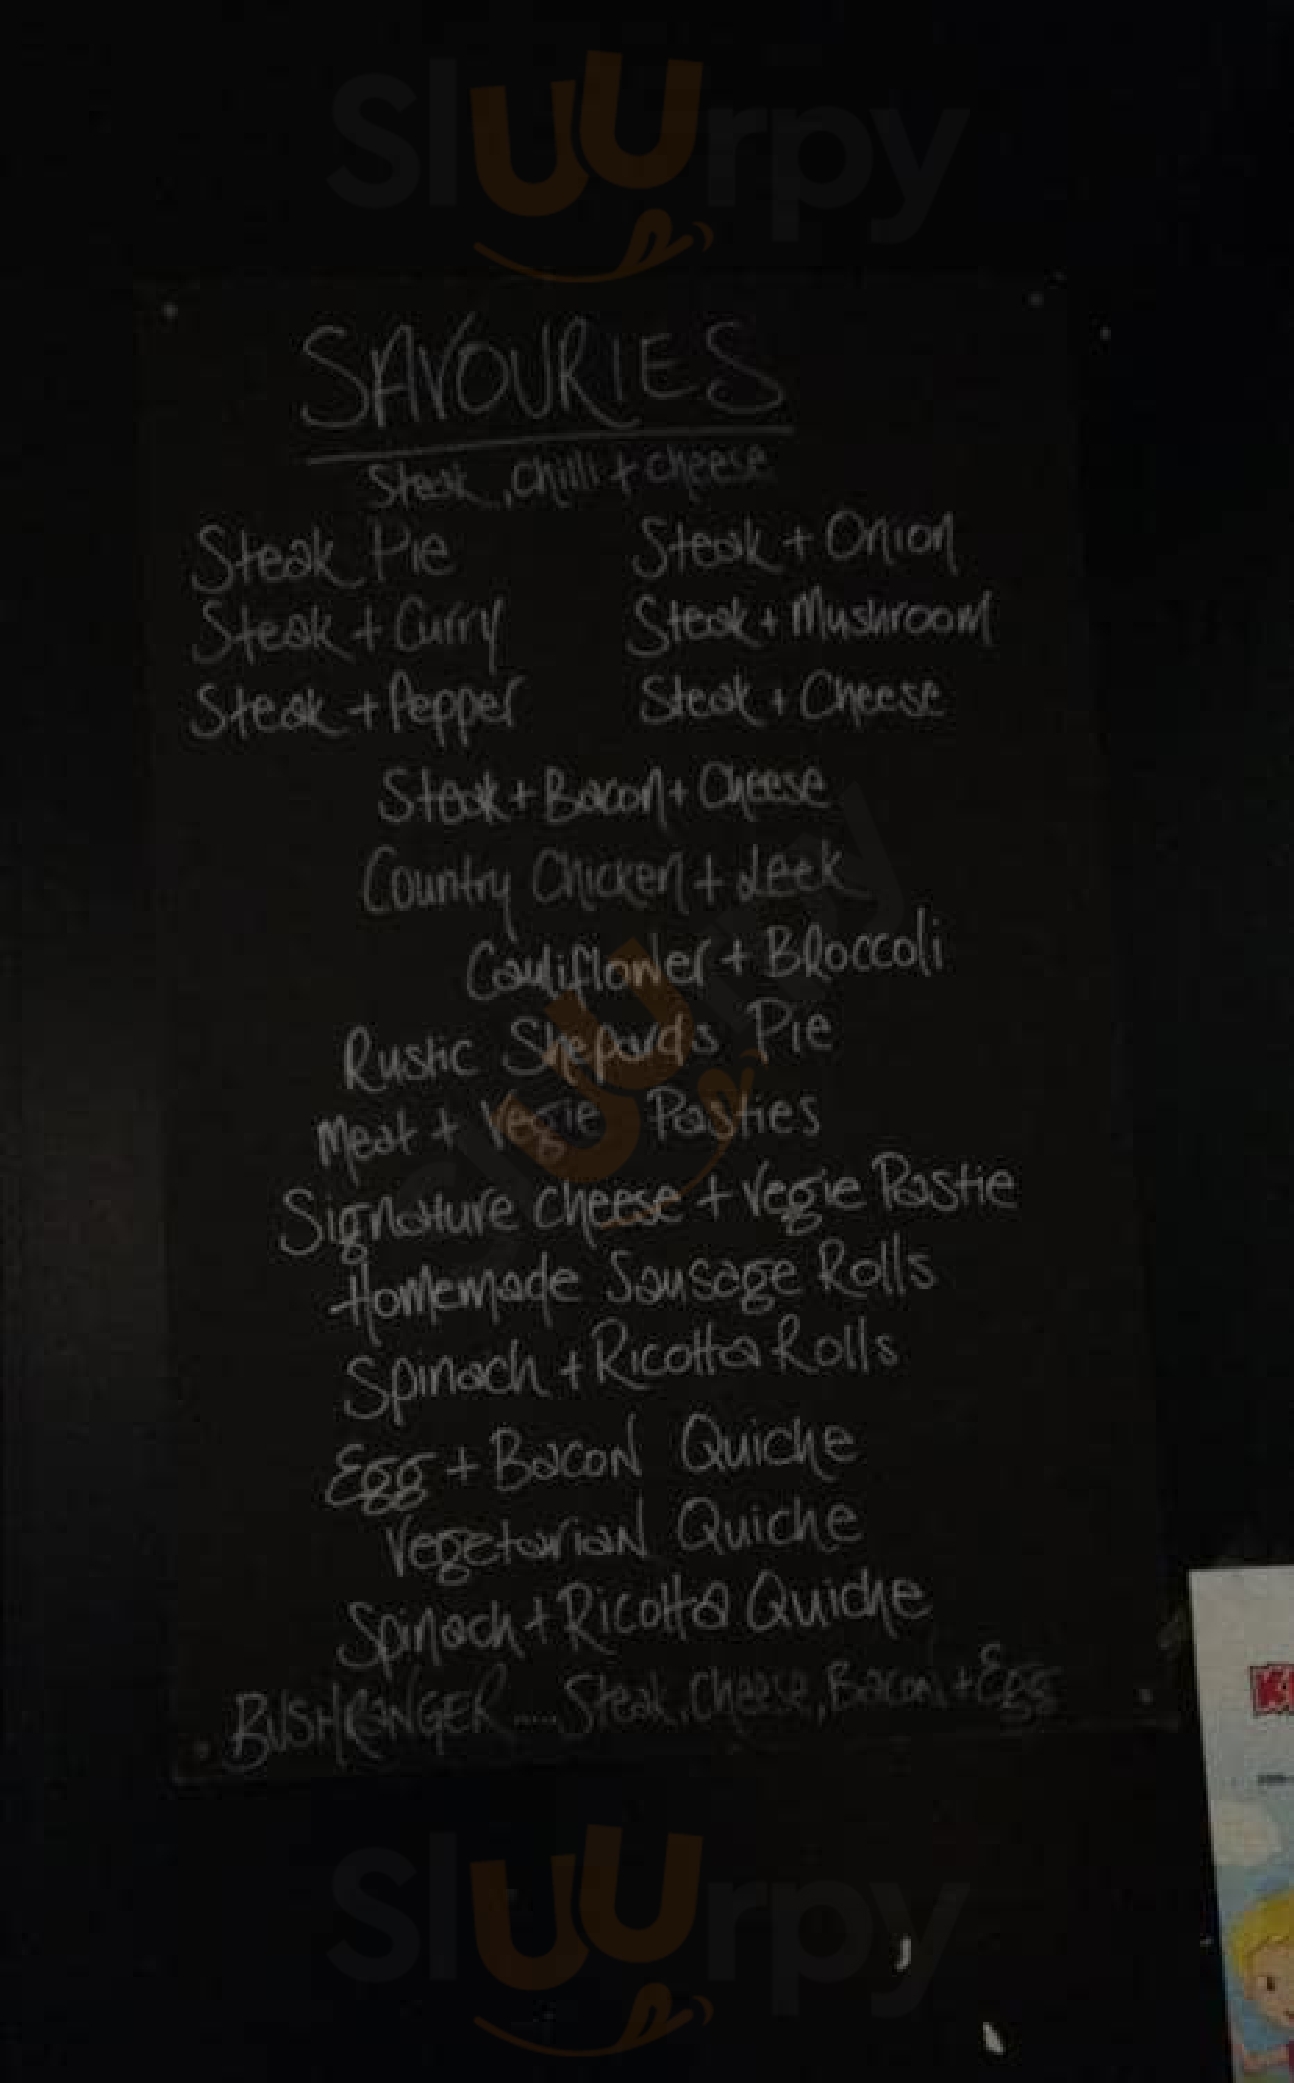 Sluurpy
SAVOURIES
Steak, Chilli + cheese
Steak Pie
Steak + Onion
Steak + Curry
Steak + Mushroom
Steak + Pepper
Steak + Cheese
Steak + Bacon + Cheese
Country Chicken + Leek
Cauliflower + Broccoli
Rustic Shepards Pie
Meat + Vegie Pasties
Signature Cheese + Vegie Pastie
Homemade Sausage Rolls
Spinach + Ricotta Rolls
Egg + Bacon Quiche
Vegetarian Quiche
Spinach + Ricotta Quiche
BUSHRANGER ..... Steak, Cheese, Bacon + Egg
Sluurpy
Sluurpy